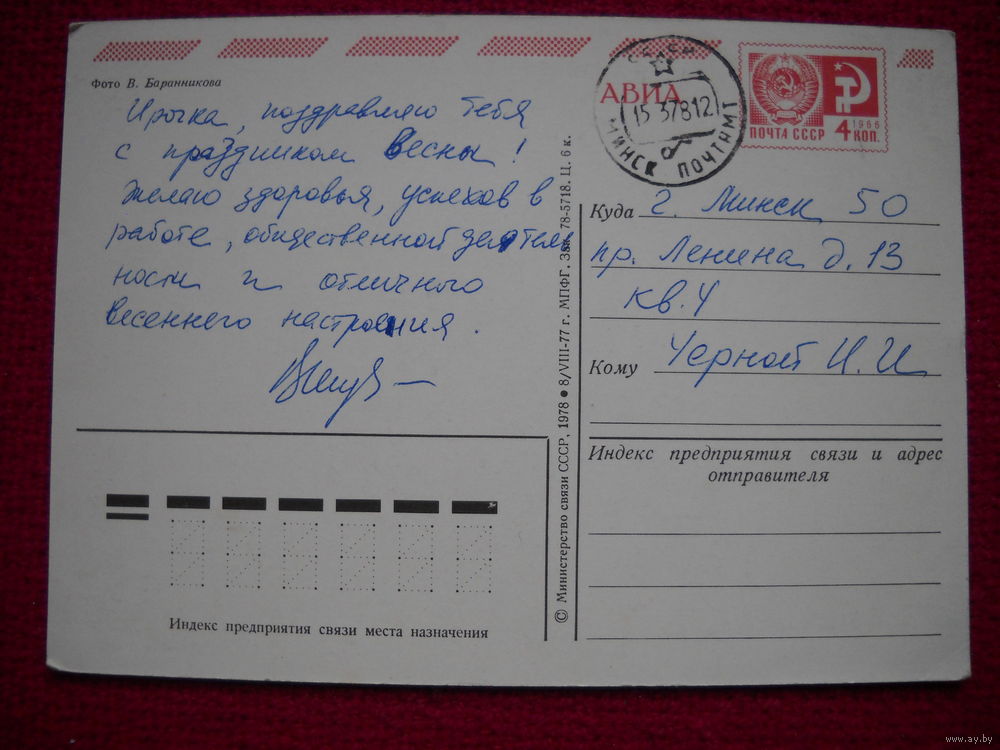 Фото В. Баранникова
Ирочка, поздравляю тебя
с праздником весны!
Желаю здоровья, успехов в
работе, общественной деятель
ности и отличного
весеннего настроения.
АВИА
15 37812
МИНСК ПОЧТАМТ
ПОЧТА СССР
1966
4 КОП.
Куда г. Минск 50
пр. Ленина д. 13
кв. 4
Кому Черной И. И
Индекс предприятия связи и адрес
отправителя
Индекс предприятия связи места назначения
© Министерство связи СССР, 1978 ● 8/VIII-77 г. МПФГ. Зак. 78-5718. Ц. 6 к.
www.ay.by